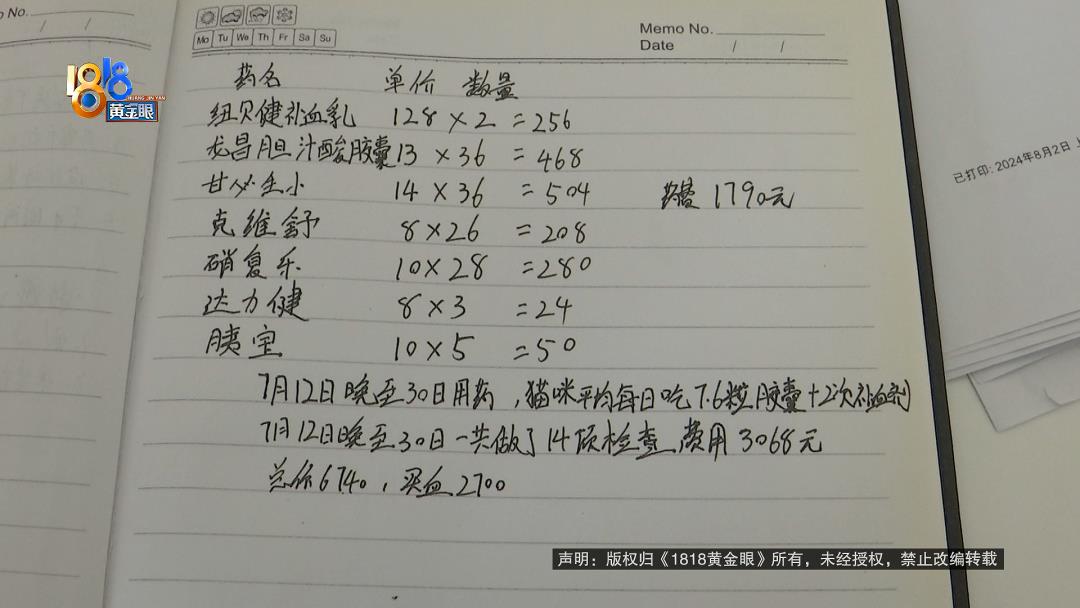 No.
/ /
Mo Tu We Th Fr Sa Su
Memo No.
Date / /
1818
HUANG JIN YAN
黄金眼
药名 单价 数量
纽贝健补血乳 128×2 =256
龙昌胆汁酸胶囊 13 ×36 = 468
甘必生小 14×36 =504 1790元
克维舒 8×26 =208
硝复乐 10×28 =280
达力健 8×3 =24
胰宝 10×5 =50
7月12日晚至30日用药,猫咪平均每日吃7.6粒胶囊+2次补血剂
7月12日晚至30日一共做了14项检查,费用3068元
总价6740,买血2700
已打印: 2024年8月2日 上
声明：版权归《1818黄金眼》所有，未经授权，禁止改编转载